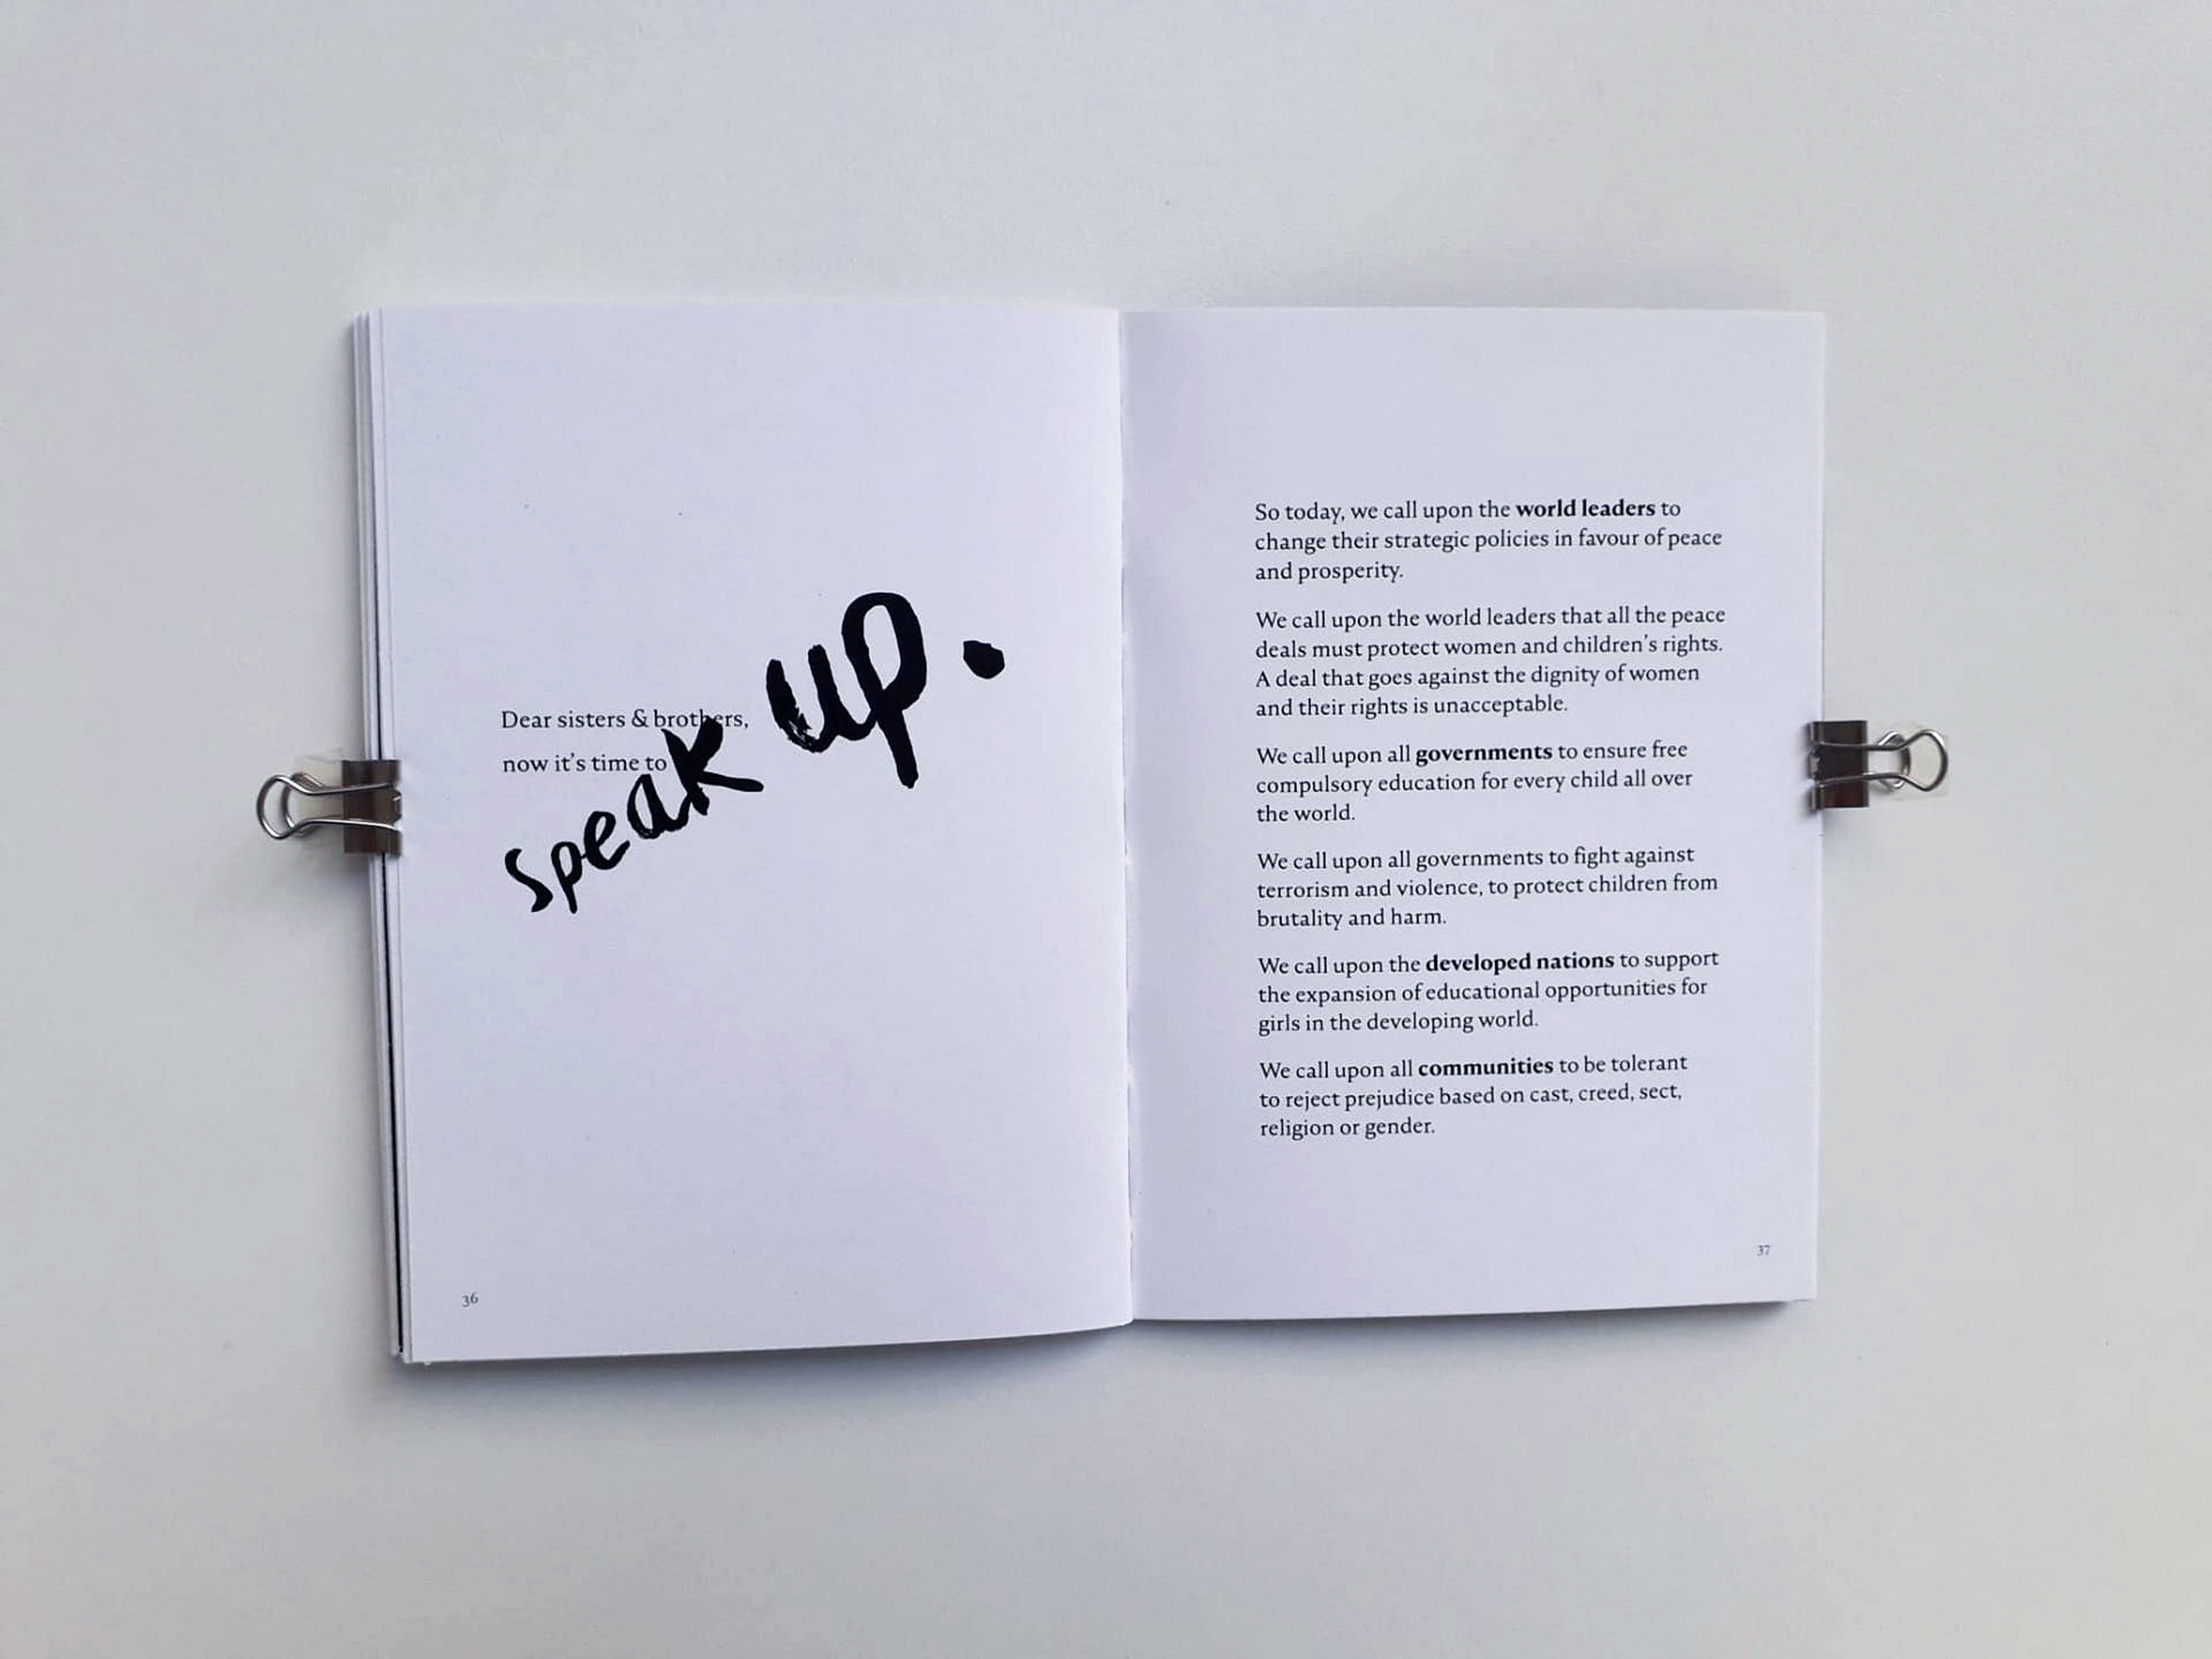 Dear sisters & brothers,
now it's time to
speak up.
36
So today, we call upon the world leaders to
change their strategic policies in favour of peace
and prosperity.
We call upon the world leaders that all the peace
deals must protect women and children's rights.
A deal that goes against the dignity of women
and their rights is unacceptable.
We call upon all governments to ensure free
compulsory education for every child all over
the world.
We call upon all governments to fight against
terrorism and violence, to protect children from
brutality and harm.
We call upon the developed nations to support
the expansion of educational opportunities for
girls in the developing world.
We call upon all communities to be tolerant
to reject prejudice based on cast, creed, sect,
religion or gender.
37